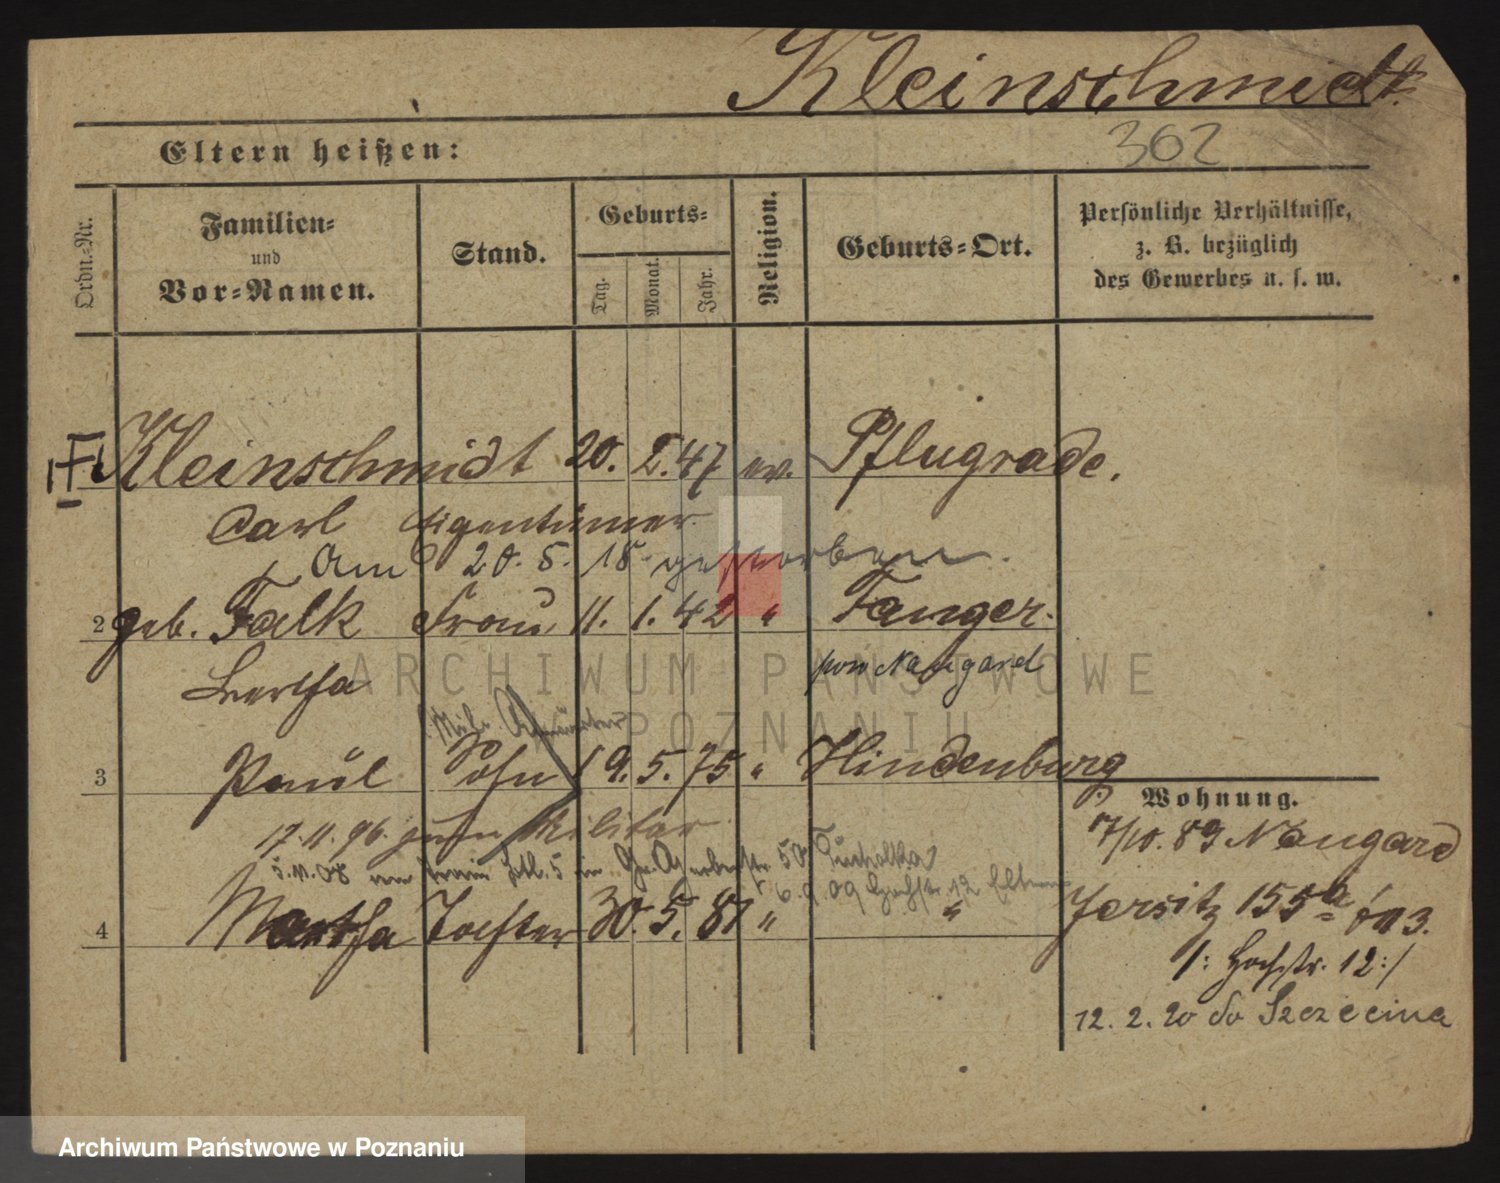 Kleinschmidt.
362
Eltern heißen:
Ordn.-Nr.
Familien-
und
Vor-Namen.
Stand.
Geburts-
Tag.
Monat.
Jahr.
Religion.
Geburts-Ort.
Persönliche Verhältnisse,
z. B. bezüglich
des Gewerbes u. s. w.
Kleinschmidt 20. 2. 47 ev. Pflugrade.
Carl Eigentümer
Am 20. 5. 18 gestorben.
2 geb. Falk Frau 11. 1. 42 " Fanger.
Bertha pow Naugard
3 Paul Sohn 19. 5. 75 " Hindenburg
17. 11. 96. zum Militär
5. 11. 08 Train 5 in 50
6. 9. 09 Hochstr. 12 Eltern
4 Martha Tochter 30. 5. 81 " "
Wohnung.
17/10. 89 Naugard
Jersitz 155a
/: Hochstr. 12 :/
12. 2. 20 do Szczecina
ARCHIWUM PAŃSTWOWE
W POZNANIU
Archiwum Państwowe w Poznaniu